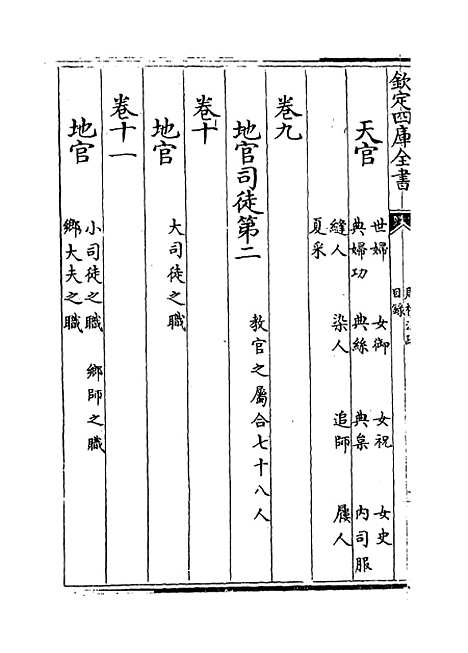 欽定四庫全書
目錄
天官
世婦 女御 女祝 女史
典婦功 典絲 典枲 內司服
縫人 染人 追師 屨人
夏采
卷九
地官司徒第二 教官之屬合七十八人
卷十
地官 大司徒之職
卷十一
地官 小司徒之職 鄉師之職
鄉大夫之職